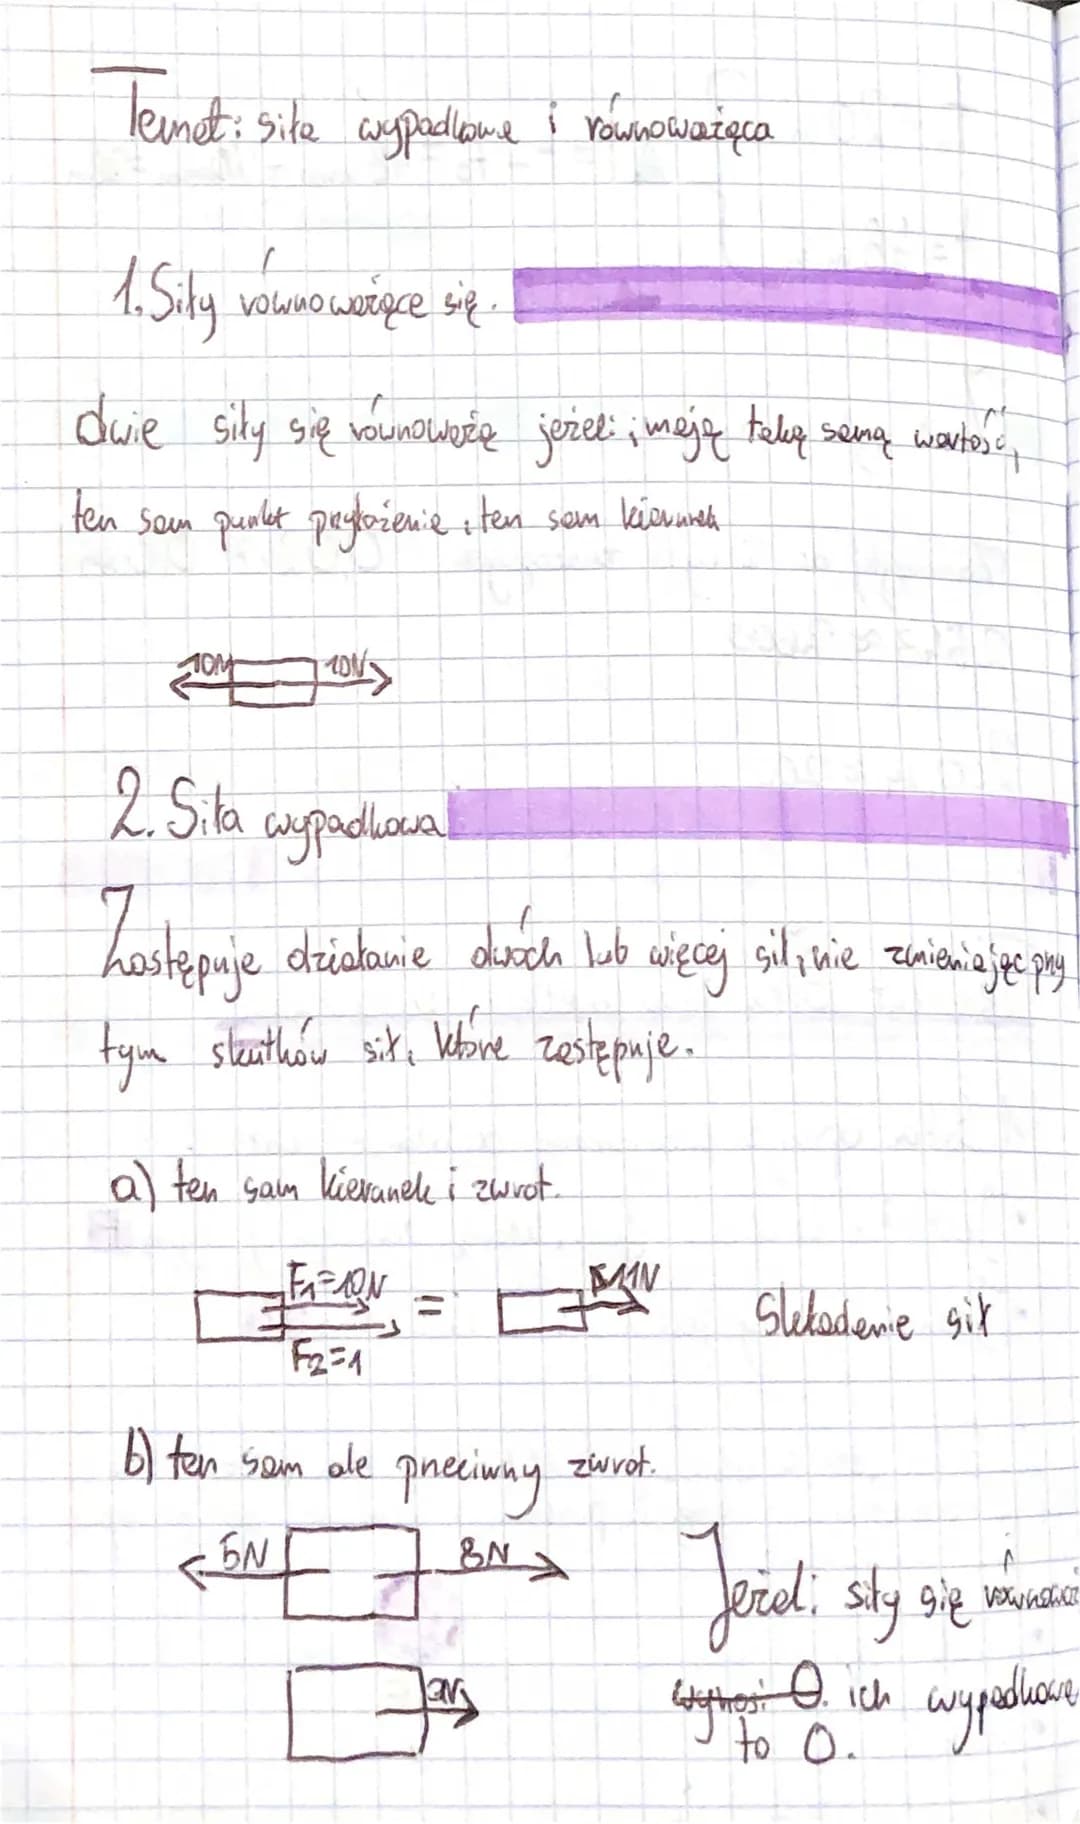 Temat: siła wypadkowa i równoważąca
1. Siły równoważące się.
dwie siły się równoważą jeżeli; mają taką samą wartość,
ten sam punkt przyłożenia, ten sam kierunek
10N 10N
2. Siła wypadkowa
Zastępuje działanie dwóch lub więcej sił, nie zmieniając przy
tym skutków sił, które zastępuje.
a) ten sam kierunek i zwrot.
F1=10N = 11N Składanie sił
F2=1
b) ten sam ale przeciwny zwrot.
5N 8N Jeżeli siły się równoważ
3N wynosi 0. ich wypadkowa
to 0.